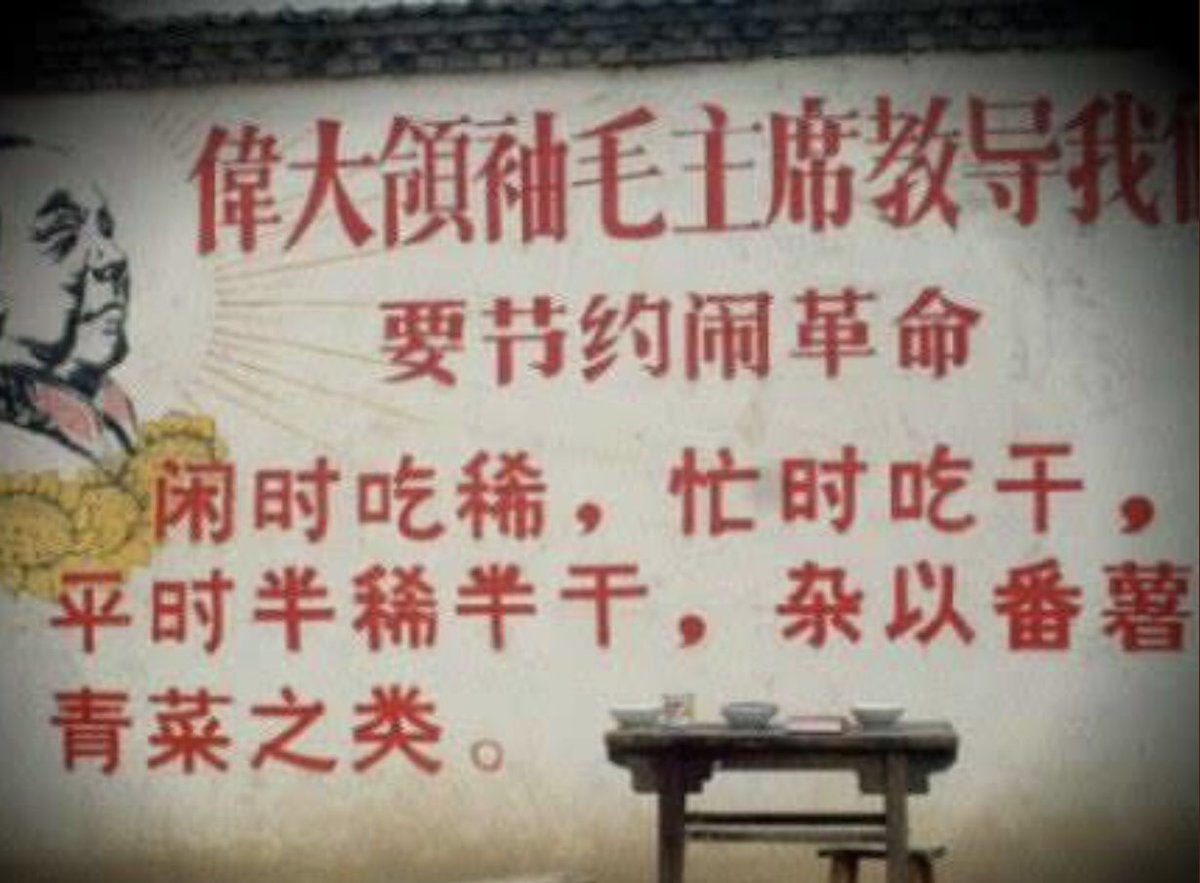 偉大領袖毛主席教导我们
要节约闹革命
闲时吃稀，忙时吃干，
平时半稀半干，杂以番薯
青菜之类。